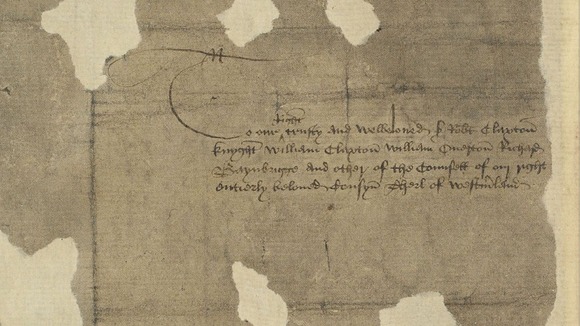 Right
To our trusty and Welbeloved S Robt Claxton
knyght William Claxton William Richard
Baynbrigge and other of the Counsell of our right
entierly beloved Cousyn Therl of Westmland